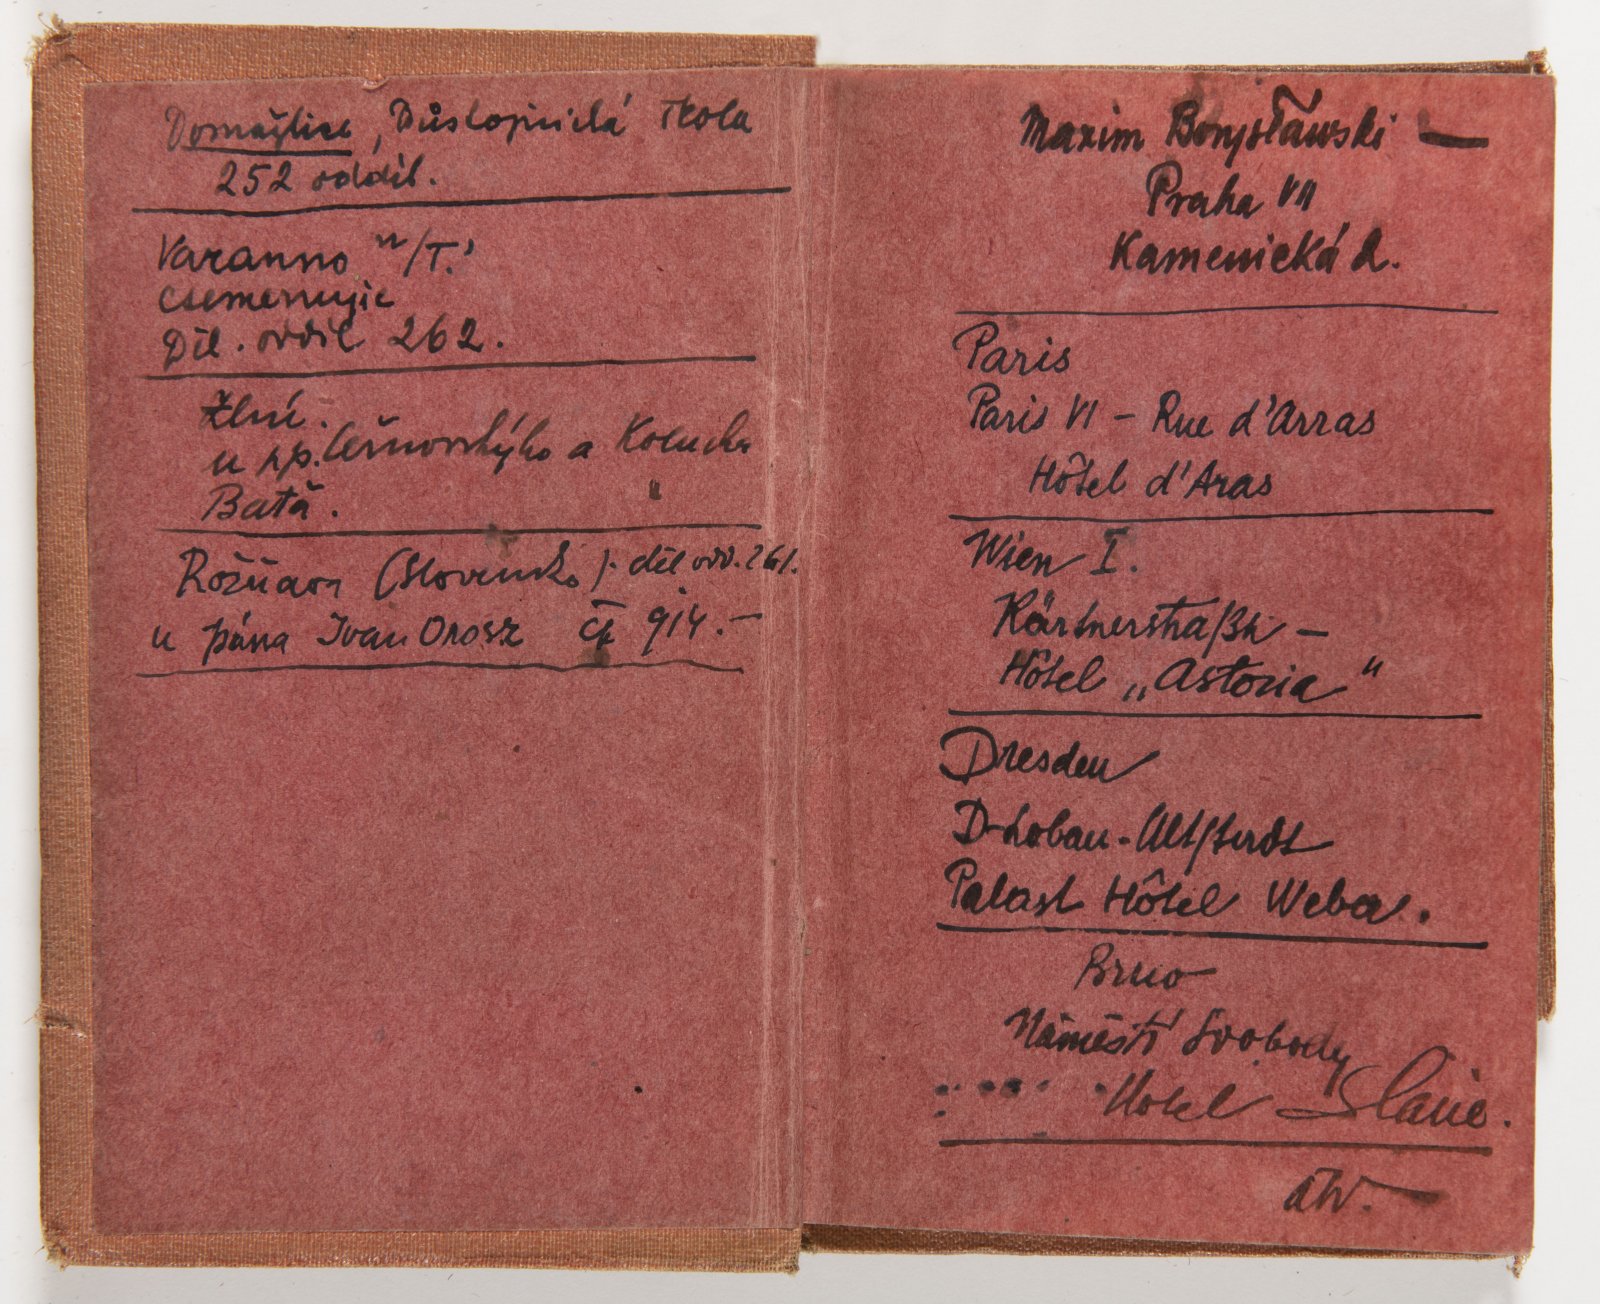 Domažlice, Důstojnická škola
252 oddíl.
Varanno n/T.
Csemernyie
Děl. oddíl 262.
Zlín.
u pp. a
Baťa.
Rožňava (Slovensko). děl odd. 261.
u pána Ivan Orosz čp 914.–
Maxim Boryslawski —
Praha VII
Kamenická 2.
Paris
Paris VI – Rue d'Arras
Hôtel d'Aras
Wien I.
Kärtnerstraße –
Hôtel „Astoria“
Dresden
D-Lobau-Altstadt
Palast Hôtel Weber.
Brno
Náměstí Svobody
Hotel Slavie.
atd.